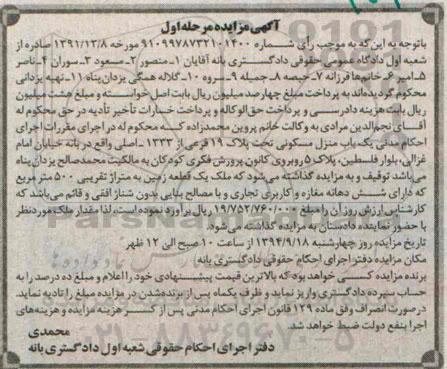 آگهی مزایده مرحله اول
باتوجه به این که به موجب رأی شماره ۹۱۰۹۹۷۸۷۳۲۱۰۱۴۰۰ مورخه ۱۳۹۱/۱۲/۸ صادره از
شعبه اول دادگاه عمومی حقوقی دادگستری بانه آقایان ۱ـ منصور ۲ـ مسعود ۳ـ سوران ۴ـ ناصر
۵ـ امیر ۶ـ خانم‌ها فرزانه ۷ـ حیصه ۸ـ جمیله ۹ـ سروه ۱۰ـ گلاله همگی یزدان پناه ۱۱ـ تهیه یزدانی
محکوم گردیده‌اند به پرداخت مبلغ چهارصد میلیون ریال بابت اصل خواسته و مبلغ هشت میلیون
ریال بابت هزینه دادرسی و پرداخت حق‌الوکاله و پرداخت خسارات تأخیر تأدیه در حق محکوم له
آقای نجم‌الدین مرادی به وکالت خانم پروین محمدزاده که محکوم له در اجرای مقررات اجرای
احکام مدنی یک باب منزل مسکونی تحت پلاک ۱۹ فرعی از ۱۳۳۳ ـ اصلی واقع در بانه خیابان امام
غزالی، بلوار فلسطین، پلاک ۵ روبروی کانون پرورش فکری کودکان به مالکیت محمدصالح یزدان پناه
می‌باشد توقیف و به مزایده گذاشته می‌شود که ملک یک قطعه زمین به متراژ تقریبی ۵۰۰ متر مربع
که دارای شش دهانه مغازه و کاربری تجاری و با مصالح بنایی بدون شناژ افقی و قائم می‌باشد که
کارشناس ارزش روز آن را مبلغ ۱۹/۷۵۲/۷۶۰/۰۰۰ ریال برآورد نموده است، لذا مقدار ملک موردنظر
با حضور نماینده دادستان به مزایده گذاشته می‌شود.
تاریخ مزایده روز چهارشنبه ۱۳۹۴/۹/۱۸ از ساعت ۱۰ صبح الی ۱۲ ظهر
مکان مزایده دفتر اجرای احکام حقوقی دادگستری بانه
برنده مزایده کسی خواهد بود که بالاترین قیمت پیشنهادی خود را اعلام و مبلغ ده درصد را به
حساب سپرده دادگستری واریز نماید و ظرف یکماه پس از برنده شدن در مزایده مبلغ را تادیه نماید.
در صورت انصراف وفق ماده ۱۲۹ قانون اجرای احکام مدنی پس از کسر هزینه مزایده و هزینه‌های
اجرا بنفع دولت ضبط خواهد شد.
محمدی
دفتر اجرای احکام حقوقی شعبه اول دادگستری بانه
۰۲۱-۸۸۳۴۹۶۷۰-۵